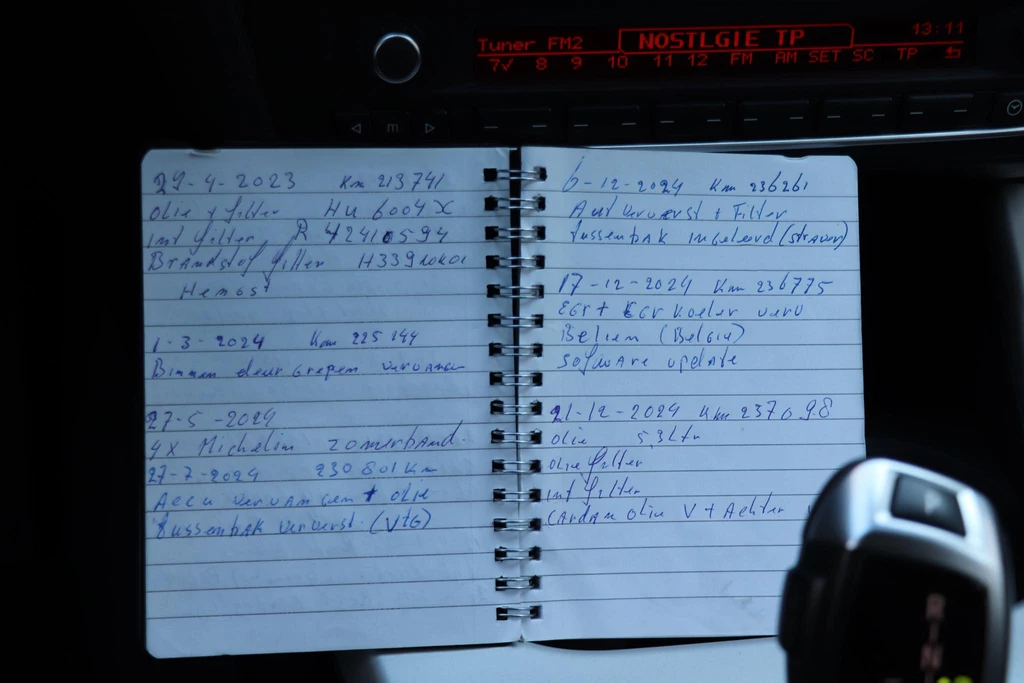 Tuner FM2
NOSTLGIE TP
13:11
7✓ 8 9 10 11 12 FM AM SET SC TP
m
29-4-2023 Km 213741
Olie + filter HU 6004X
Int filter R
Brandstof filter
Hengst
1-3-2024 Km 225144
Binnen deurgrepen vervangen
27-5-2024
4x Michelin zomerband.
27-7-2024 230801 Km
Accu vervangen + olie
Tussenbak ververst. (VTG)
6-12-2024 Km 236261
Aut ververst + Filter
tussenbak ingeleerd
17-12-2024 Km 236775
EGR + EGR Koeler verv
(Belgie)
Software update
21-12-2024 Km 237098
olie 5,3 Ltr
olie filter
int filter
Cardan olie V + Achter
R
N